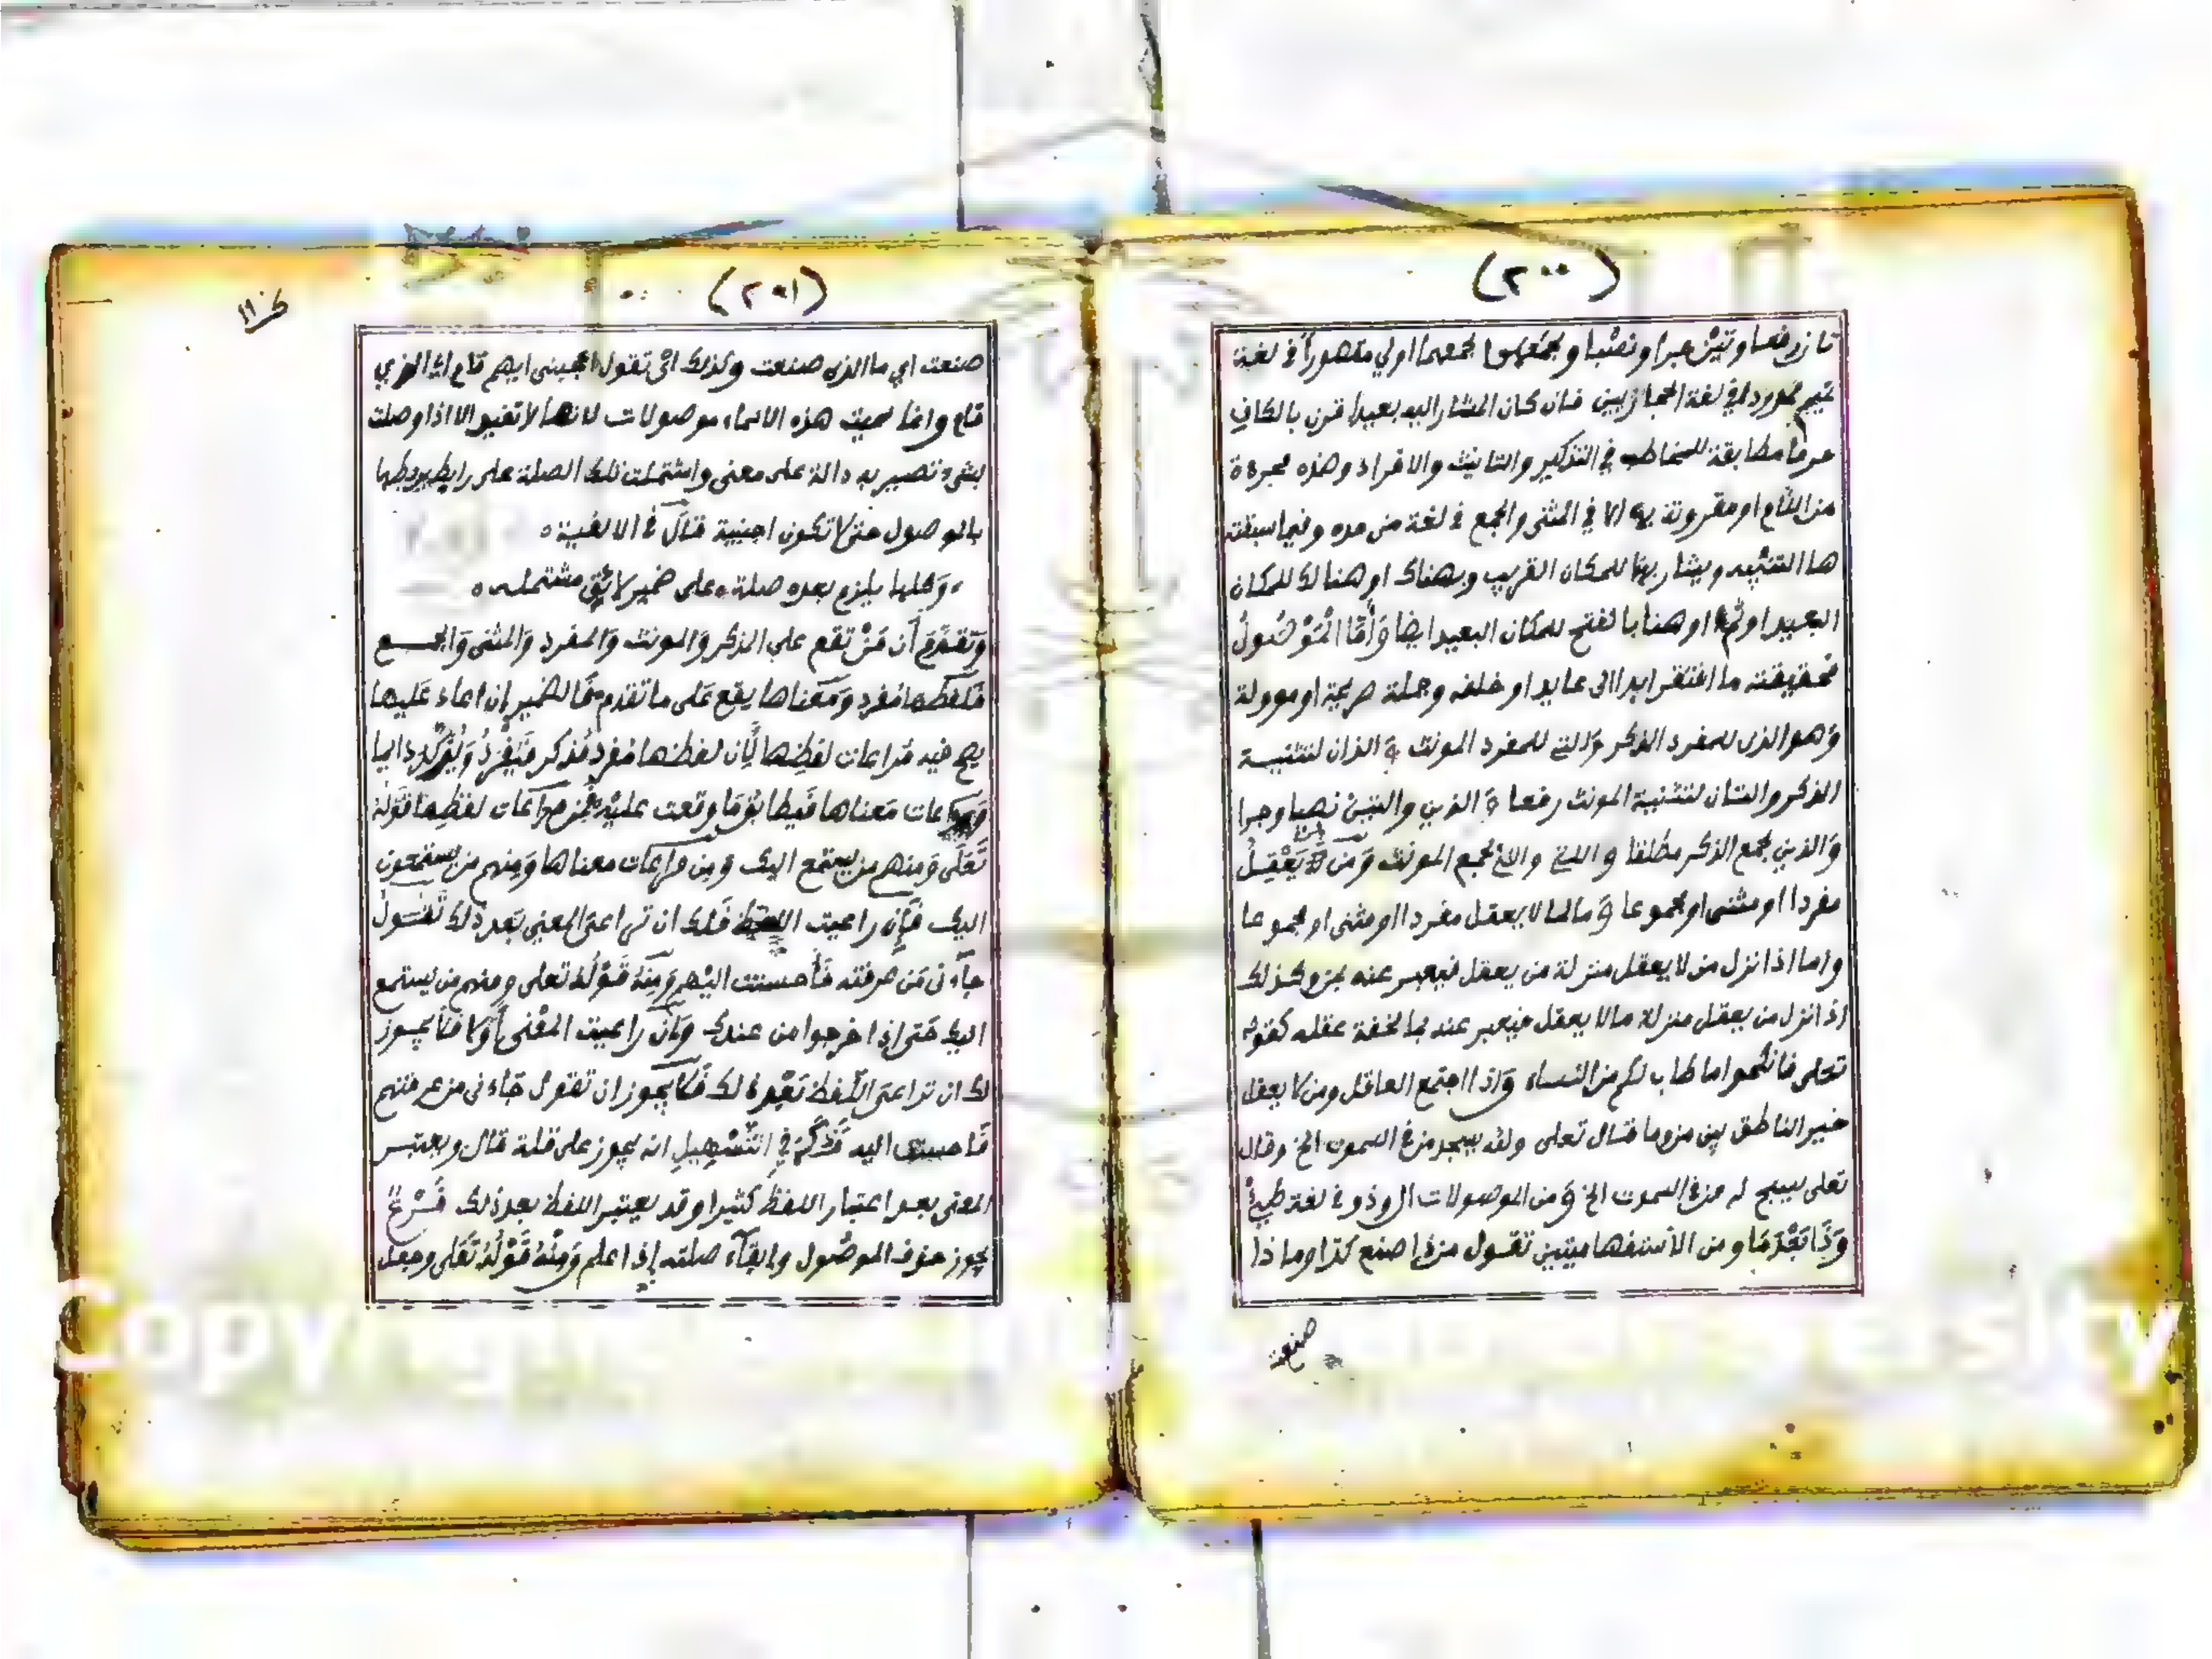 (٢٠٠)
تان رفعا وتين جرا ونصبا وبجمعهما اولي مقصوراً في لغة
تميم ممدودا في لغة الحجازيين فان كان المشار اليه بعيدا قرن بالكاف
حرفا مطابقة للمخاطب في التذكير والتانيث والافراد وهذه مجردة
من اللام او مقرونة بها الا في المثنى والجمع في لغة من مده وفيما سبقته
ها التنبيه ويشار بهنا للمكان القريب وبهناك او هنالك للمكان
البعيد او ثم او هنا بالفتح للمكان البعيد ايضا وَأَمَّا الْمَوْصُولُ
فحقيقته ما افتقر ابدا الى عايد او خلفه وجملة صريحة او موولة
وهو الذى للمفرد المذكر والتي للمفرد المونث و الذان لتثنية
المذكر والتان لتثنية المونث رفعا و الذين والتين نصبا وجرا
وَالذين لجمع الذكر مطلقا و اللاتي واللاي لجمع المونث وَمَن لمن يَعْقِلُ
مفردا او مثنى او مجموعا وَ ما لما لا يعقل مفردا او مثنى او مجموعا
واما اذا نزل من لا يعقل منزلة من يعقل فيعبر عنه بمن وكذلك
اذا نزل من يعقل منزلة ما لا يعقل فيعبر عنه بما لخفة عقله كقوله
تعلى فانكحوا ما طاب لكم من النساء وَاذا اجتمع العاقل ومن لا يعقل
خير الناطق بين من وما قال تعلى ولله يسجد من في السموت الخ وقال
تعلى يسبح له من في السموت الخ وَ من الموصولات ال وذو في لغة طيئ
وَذَا بَعْدَ مَا ومن الأستفهاميتين تقول من ذا صنع كذا وما ذا
صنعت
(٢٠١)
صنعت اي ما الذى صنعت وكذلك اي تقول يعجبنى ايهم قام اي الذي
قام وانما سميت هذه الاسماء موصولات لانها لا تفيد الا اذا وصلت
بشيء تصير به دالة على معنى واشتملت تلك الصلة على رابط يربطها
بالموصول حتى لا تكون اجنبية قال في الالفية ه
وَكلها يلزم بعده صلة ه على ضمير لائق مشتمله ه
وَتَقَدَّمَ أَن مَنْ تقع على المذكر وَالمونث وَالمفرد وَالمثنى وَالجمع
فَلَفْظها مُفرد وَمَعْناها يقع عَلى ما تقدم فَالضمير ان اعاد عَليها
يصح فيه مُراعات لفظِها لِأن لفظها مفرد مُذكر فَيُفْرَدُ وَيُذَكَّرُ دايما
وَمراعات مَعناها فَيطابق مَا وقعت عليْه فَمِن مراعَات لفظِها قَوْلُهُ
تَعَلَى وَمنهم من يستمع اليك وَمِن مراعات معناها وَمِنهم من يستمعون
اليك فَإِن راعيت اللفظ فَلك ان تراعى المعنى بَعد ذلك تَقُول
جآءنى مَن عرفته فَأحسنت اليْهم وَمِنهُ قَوْلُهُ تعلى ومنهم من يستمع
اليك حَتى إذا خرجوا من عندك وَإن راعيت المعْنى أوّلا فَلا يجوز
لك ان تراعى اللَّفظ بَعْد ذلك فَلا يجوز ان تقول جَاءنى من عرفتهم
فَاحسنت اليه فَذَكَرَ في التَّسْهِيلِ انه يجوز على قلة قال ويعتبر
المعنى بعد اعتبار اللفظ كثيرا وقد يعتبر اللفظ بعد ذلك فَرْعٌ
يجوز حذف الموصُول وابقَآء صلته إذا علم وَمِنْهُ قَوْلُهُ تَعَلى وجعل